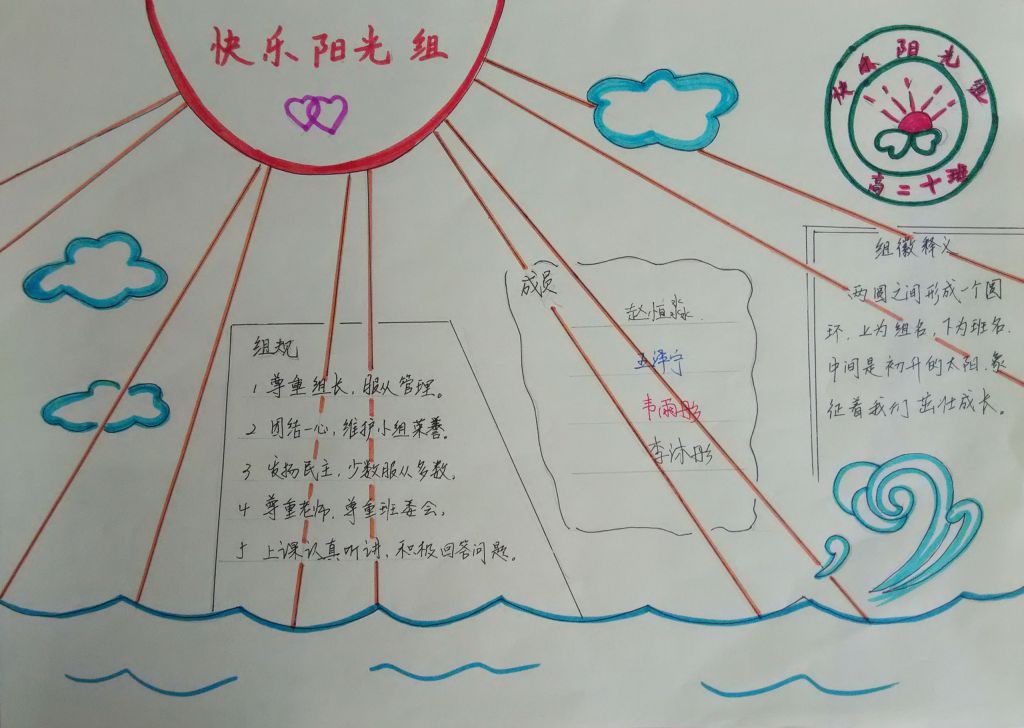 快乐阳光组
快乐阳光组
高二十班
组徽释义
两圆之间形成一个圆
环，上为组名，下为班名.
中间是初升的太阳.象
征着我们茁壮成长。
成员
赵恒淼.
王泽宁
韦雨彤
李沐彤
组规
1 尊重组长，服从管理。
2 团结一心，维护小组荣誉。
3 发扬民主，少数服从多数。
4 尊重老师，尊重班委会。
5 上课认真听讲，积极回答问题。